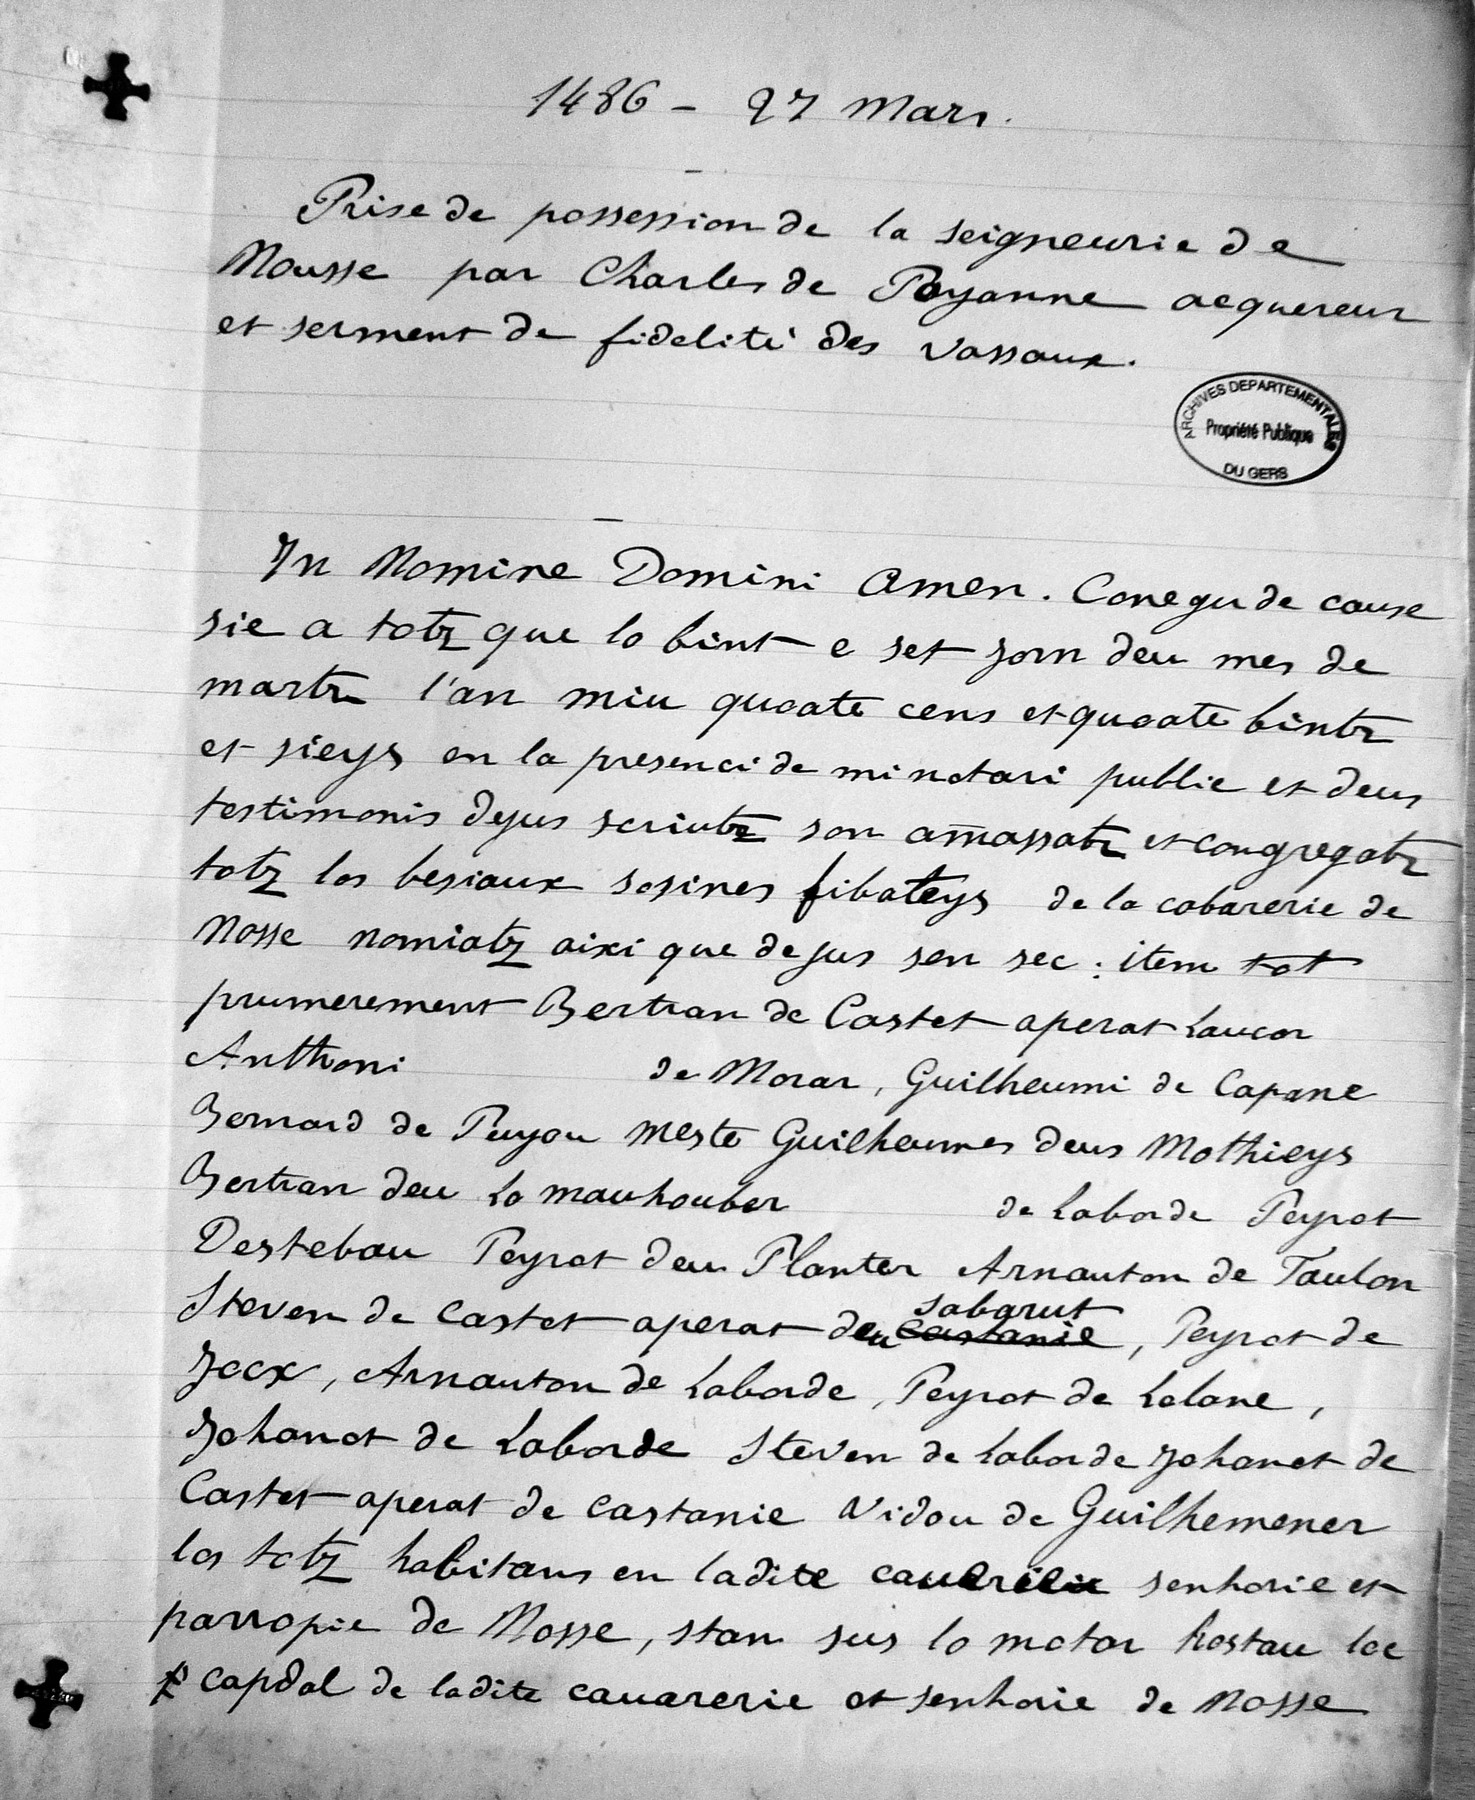 1486 - 27 Mars.
Prise de possession de la seigneurie de
Mousse par Charles de Poyanne acquereur
et serment de fidelité des vassaux.
ARCHIVES DEPARTEMENTALES
Propriété Publique
DU GERS
In Nomine Domini Amen. Conegude cause
sie a totz que lo bint e set jorn deu mes de
martz l'an miu quoate cens et quoate bintz
et sieys en la presenci de mi notari public et deus
testimonis dejus scriutz son amassatz et congregatz
totz los besiaux sosines fibateys de la cabarerie de
Nosse nomiatz aixi que dejus sen sec : item tot
prumerement Bertran de Castet aperat Laucor
Anthoni de Moras, Guilheumi de Capane
Bernard de Puyou meste Guilheumes deus Mothieys
Bertran deu Lo mauhouber de Laborde Peyrot
Destebau Peyrot deu Planter Arnauton de Taulon
Steven de Castet aperat deu castanie sabarut, Peyrot de
Jocx, Arnauton de Laborde, Peyrot de Lalane,
Johanot de Laborde Steven de Laborde Johanet de
Castet aperat de castanie Vidou de Guilhemener
los totz habitans en ladite senhorie et
parropie de Nosse, stan sus lo motar hostau loc
capdal de ladite cauarerie et senhorie de Nosse